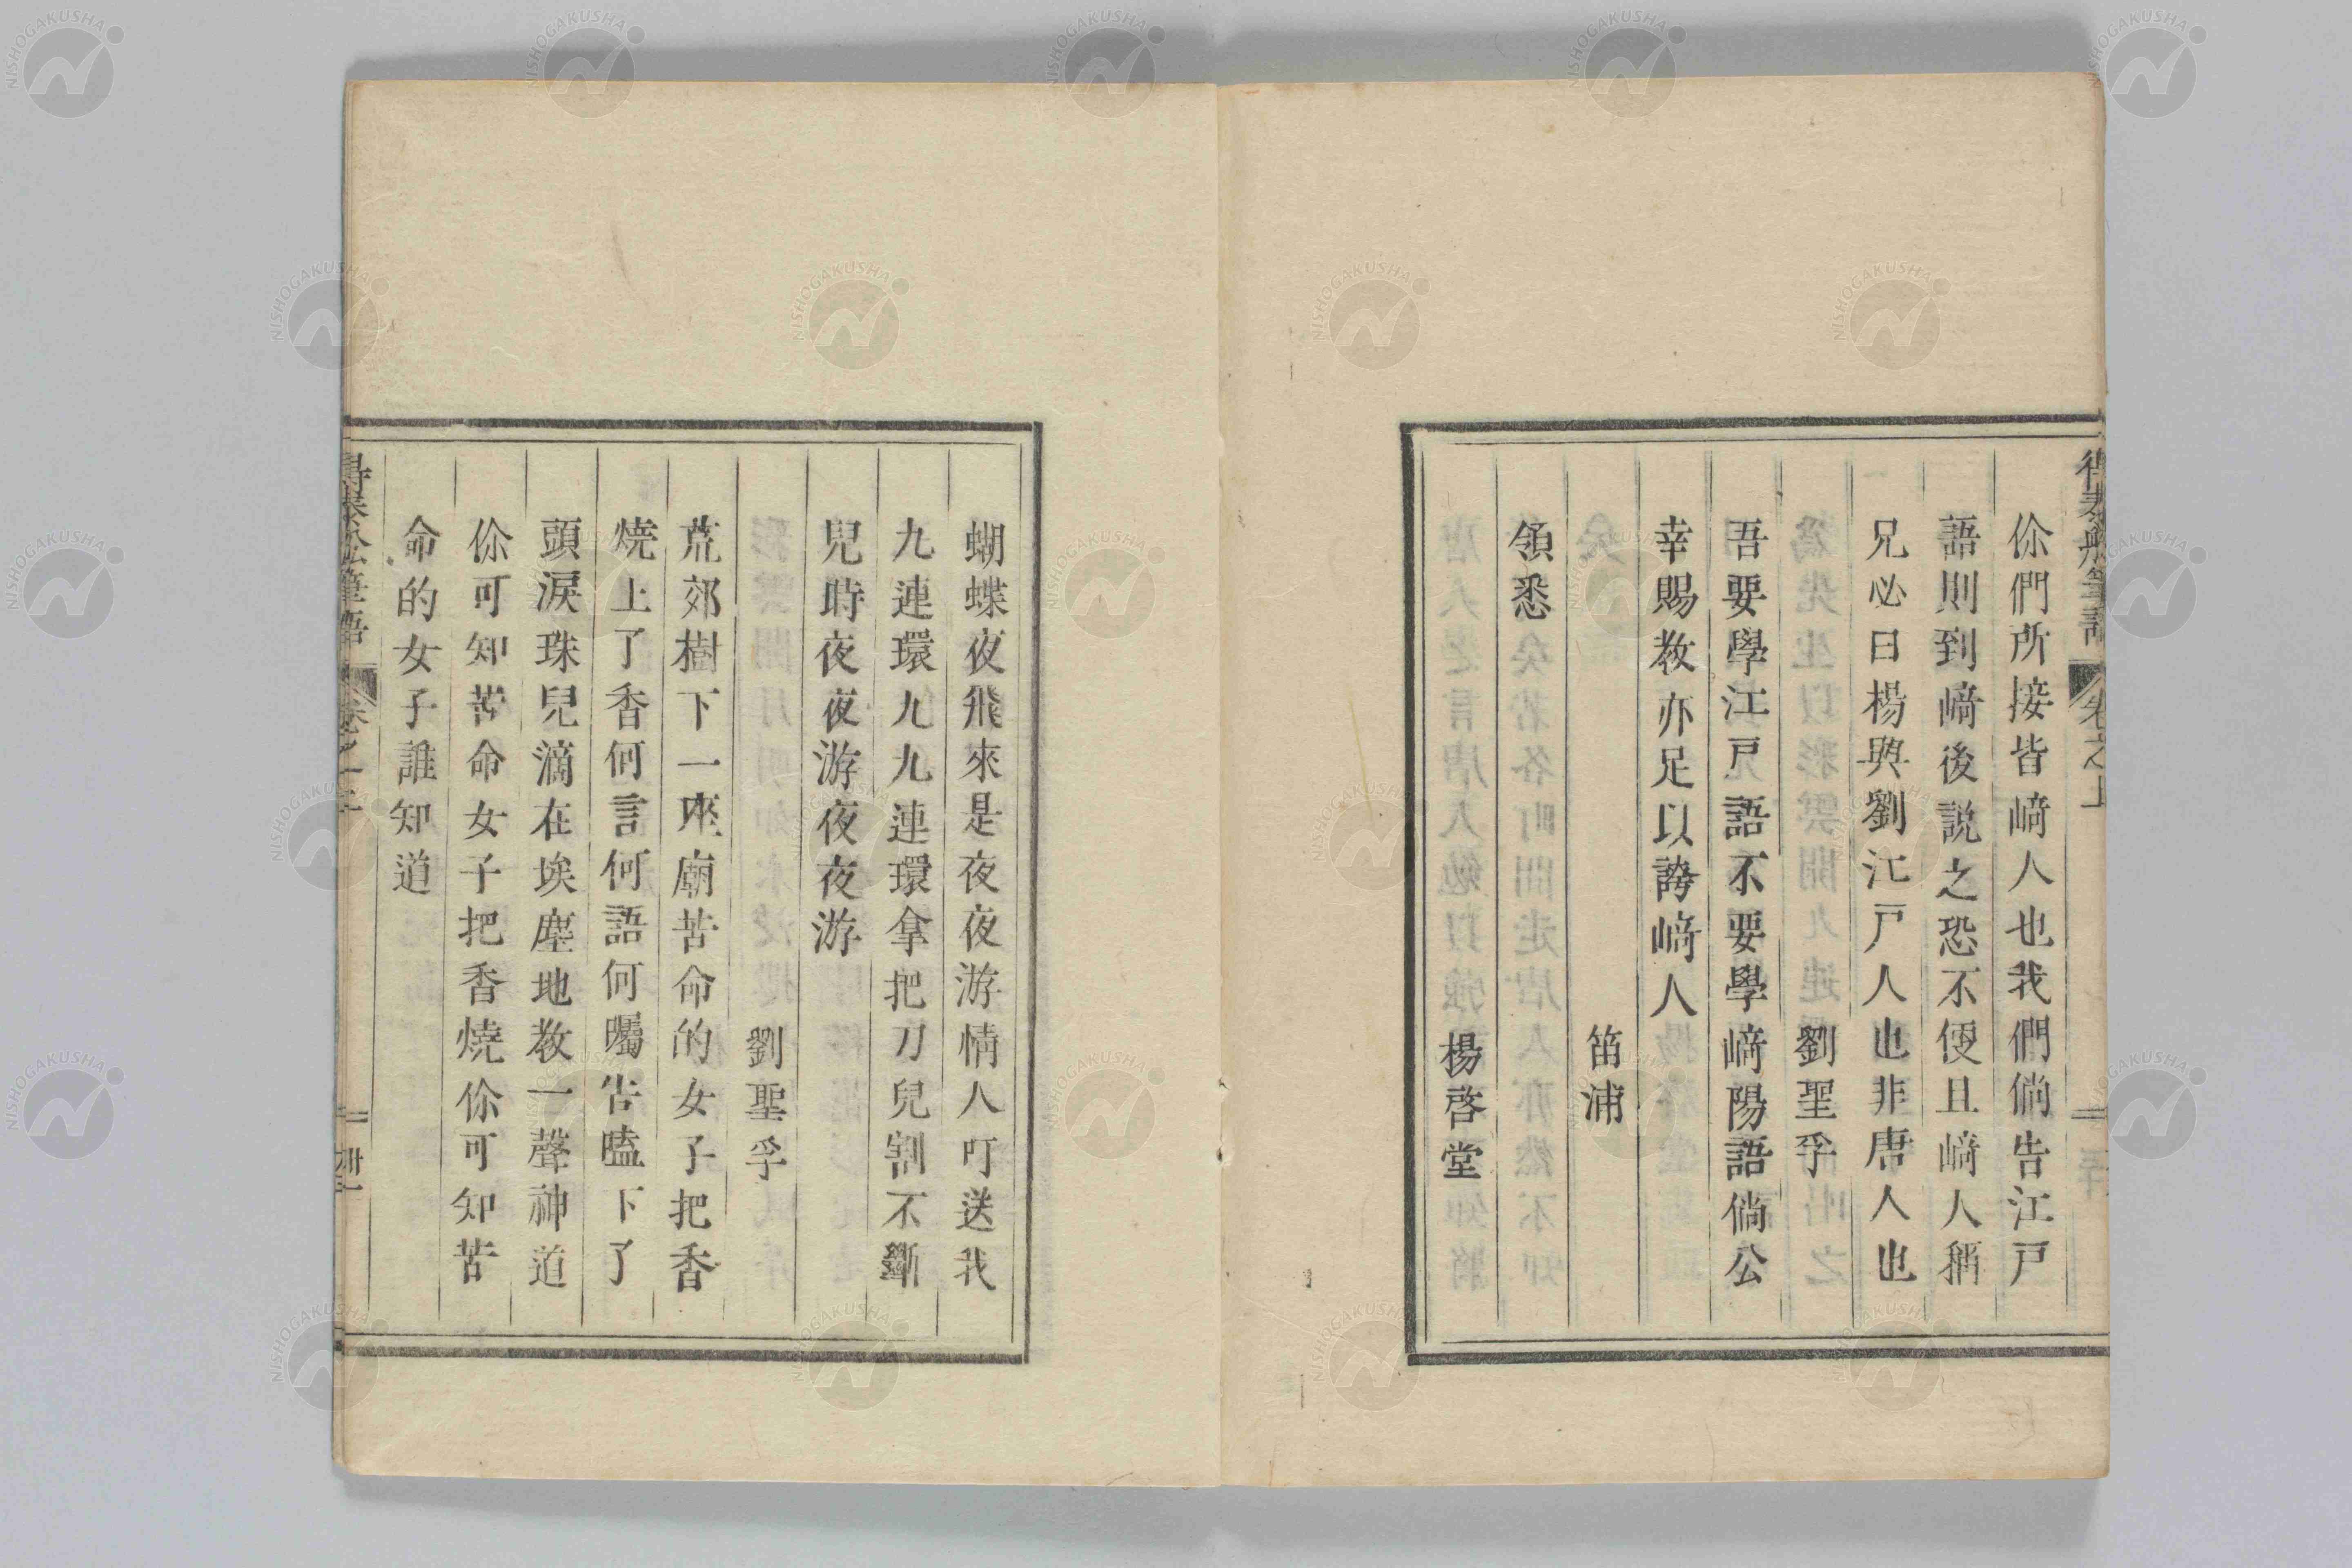 得泰船筆語 卷之上
你們所接皆﨑人也我們倘告江戸
語則到﨑後説之恐不便且﨑人稱
兄必日楊與劉江戸人也非唐人也
劉聖孚
吾要學江戸語不要學﨑陽語倘公
幸賜教亦足以誇﨑人
笛浦
領悉
楊啓堂
蝴蝶夜飛來是夜夜游情人叮送我
九連環九九連環拿把刀兒割不斷
兒時夜夜游夜夜游
劉聖孚
荒郊樹下一座廟苦命的女子把香
燒上了香何言何語何囑告嗑下了
頭淚珠兒滴在埃塵地教一聲神道
你可知苦命女子把香燒你可知苦
命的女子誰知道
NISHOGAKUSHA